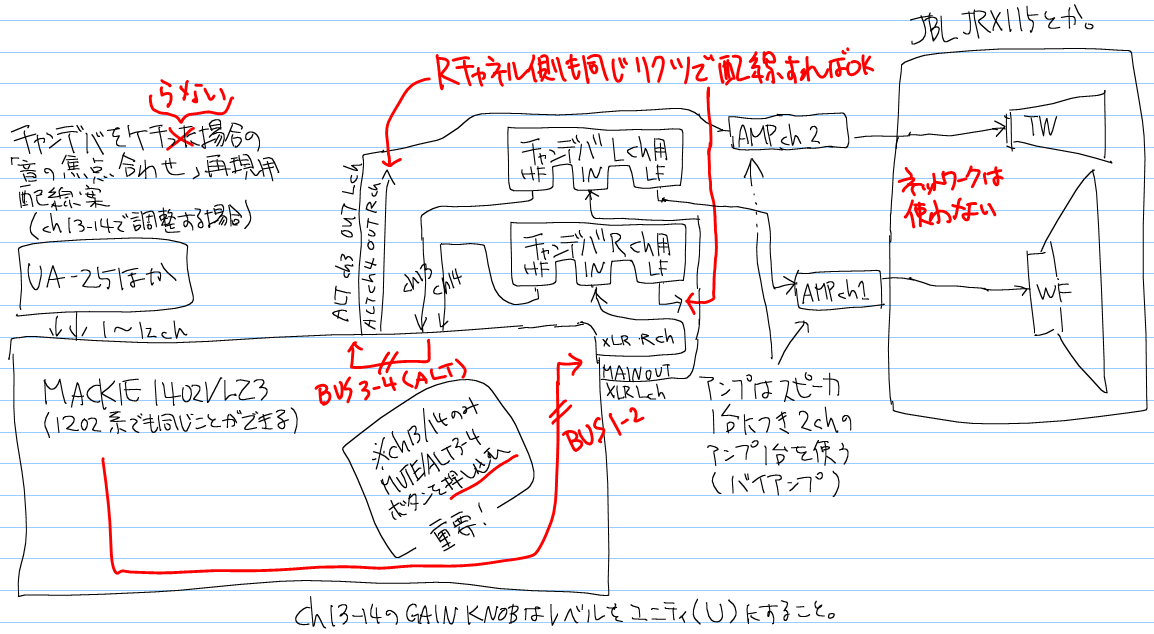 JBL JRX115とか。
Rチャネル側も同じリクツで配線すればOK
らない
チャンデバをケチった場合の
「音の焦点合わせ」再現用
配線案
(ch13-14で調整する場合)
UA-25ほか
1〜12ch
ALT ch3 OUT Lch
ALT ch4 OUT Rch
チャンデバ Lch用
HF IN LF
チャンデバ Rch用
HF IN LF
ch13
ch14
AMP ch2
AMP ch1
TW
ネットワークは
使わない
WF
XLR Rch
MAIN OUT
XLR Lch
BUS 3-4 (ALT)
BUS 1-2
MACKIE 1402VLZ3
(1202系でも同じことができる)
※ch13/14のみ
MUTE/ALT3-4
ボタンを押し込む
重要!
アンプはスピーカ
1台につき2chの
アンプ1台を使う
(バイアンプ)
ch13-14のGAIN KNOBはレベルをユニティ(U)にすること。